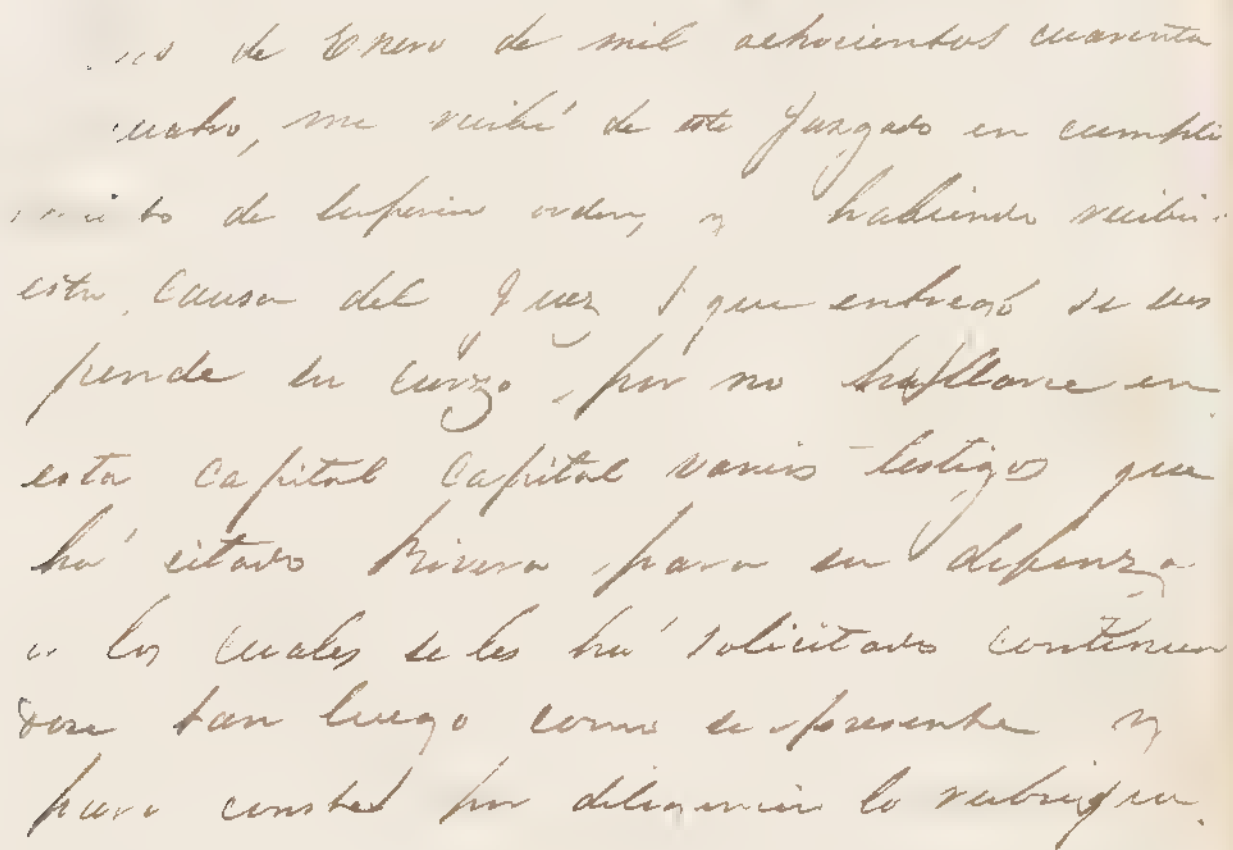 de Enero de mil ochocientos cuarenta
cuatro, me recibí de este Juzgado en cumpli
miento de superior orden, y habiendo recibi
esta causa del Juez que entregó se sus
pende su curzo, por no hallarce en
esta Capital Capital varios testigos que
há citado Rivera para su defenza
a los cuales se les há solicitado continuan
dose tan luego como se presente y
para constar por diligencia lo rubrique.